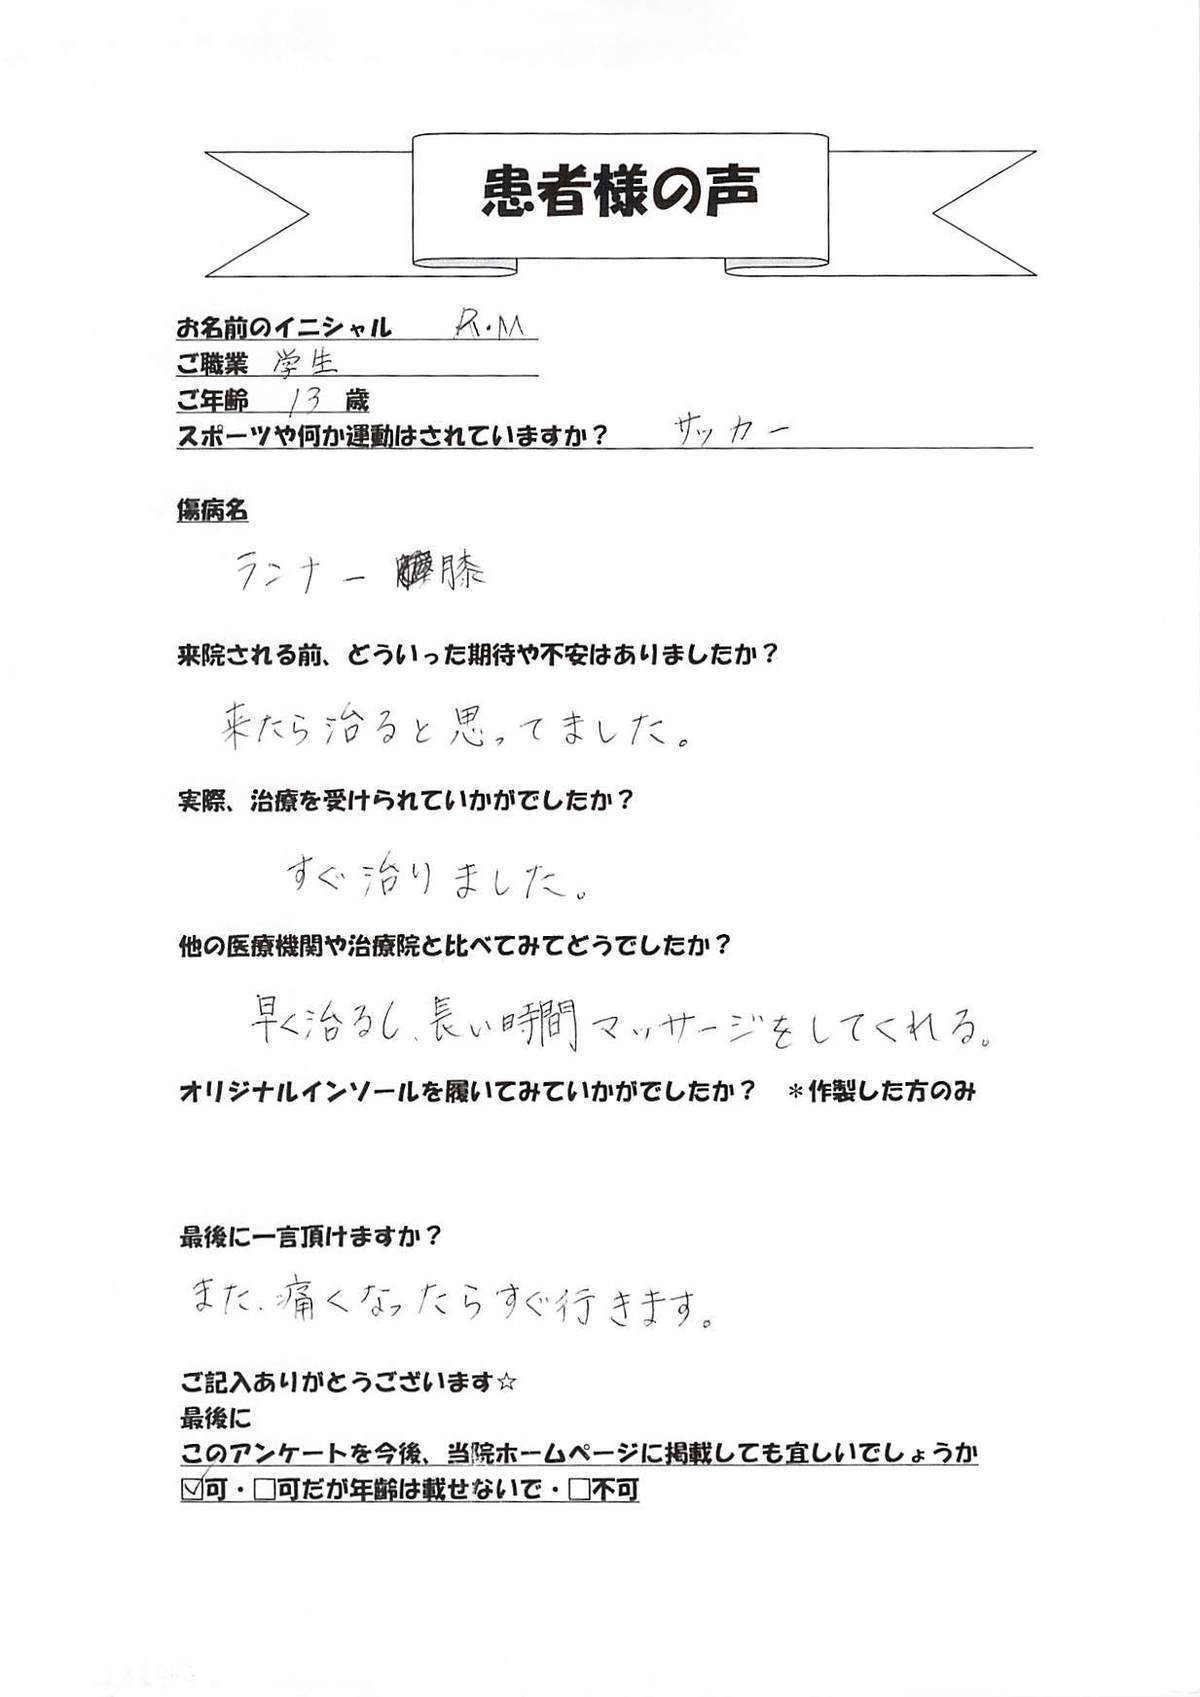 患者様の声
お名前のイニシャル R.M
ご職業 学生
ご年齢 13 歳
スポーツや何か運動はされていますか？ サッカー
傷病名
ランナー膝
来院される前、どういった期待や不安はありましたか？
来たら治ると思ってました。
実際、治療を受けられていかがでしたか？
すぐ治りました。
他の医療機関や治療院と比べてみてどうでしたか？
早く治るし、長い時間マッサージをしてくれる。
オリジナルインソールを履いてみていかがでしたか？ ＊作製した方のみ
最後に一言頂けますか？
また、痛くなったらすぐ行きます。
ご記入ありがとうございます☆
最後に
このアンケートを今後、当院ホームページに掲載しても宜しいでしょうか
☑可・□可だが年齢は載せないで・□不可